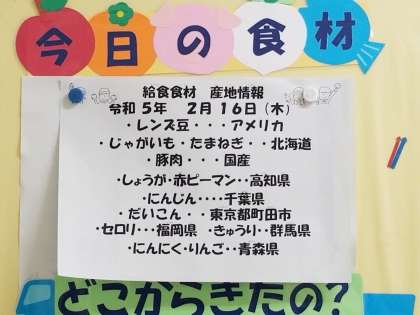 今日の食材
給食食材　産地情報
令和５年　２月１６日（木）
・レンズ豆・・・アメリカ
・じゃがいも・たまねぎ・・北海道
・豚肉・・・国産
・しょうが・赤ピーマン・・高知県
・にんじん・・・・千葉県
・だいこん・・東京都町田市
・セロリ・・・福岡県　・きゅうり・・群馬県
・にんにく・りんご・・青森県
どこからきたの？